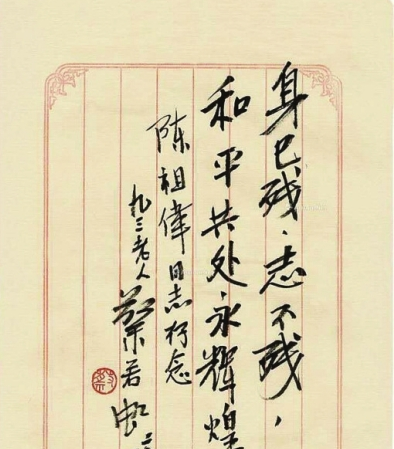 身已残，志不残，
和平共处永輝煌
陈祖偉同志存念
九三老人蔡若虹